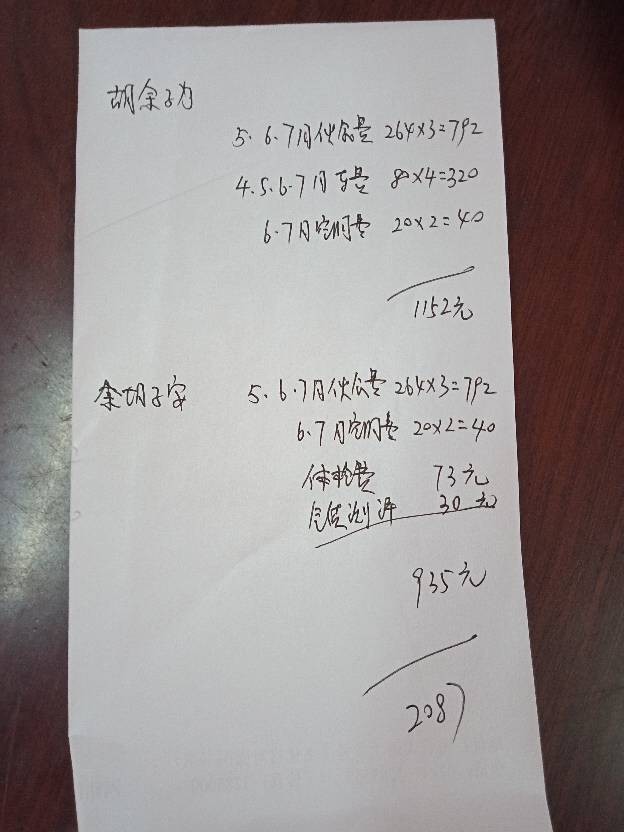 胡余子为
5.6.7月伙食费 264×3=792
4.5.6.7月车费 80×4=320
6.7月 费 20×2=40
1152元
余胡子安
5.6.7月伙食费 264×3=792
6.7月 费 20×2=40
体检费 73元
测评 30元
935元
2087